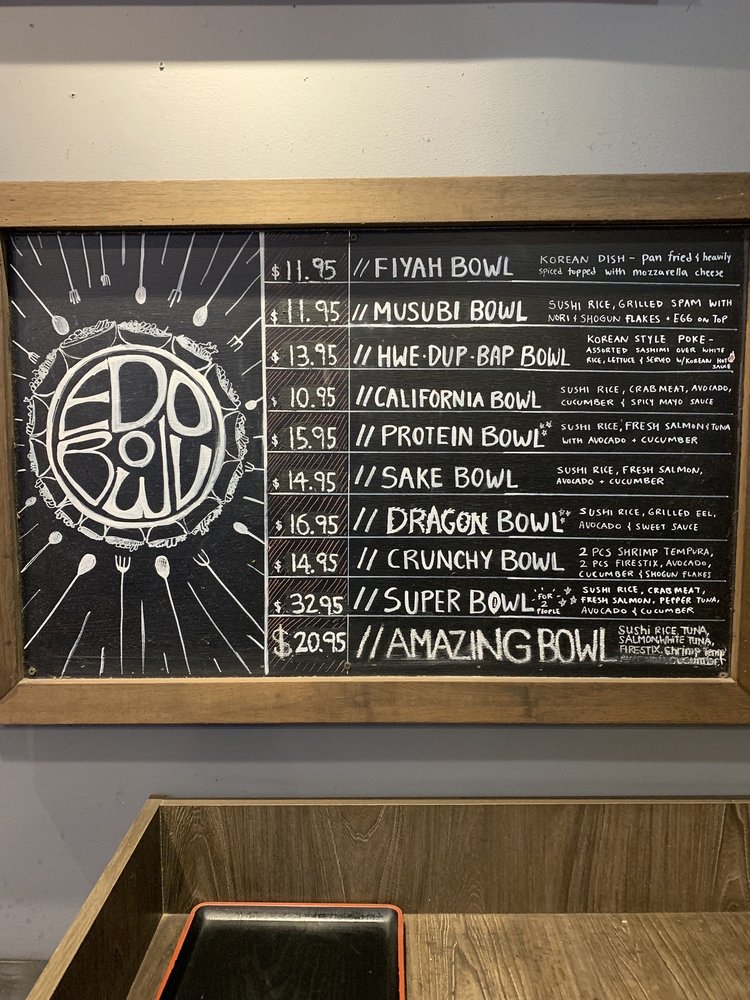 EDO
BOWL
$11.95 // FIYAH BOWL KOREAN DISH - pan fried & heavily
spiced topped with mozzarella cheese
$11.95 // MUSUBI BOWL SUSHI RICE, GRILLED SPAM WITH
NORI & SHOGUN FLAKES + EGG ON TOP
$13.95 // HWE-DUP-BAP BOWL KOREAN STYLE POKE -
ASSORTED SASHIMI OVER WHITE
RICE, LETTUCE & SERVED W/KOREAN HOT
SAUCE
$10.95 // CALIFORNIA BOWL SUSHI RICE, CRABMEAT, AVOCADO,
CUCUMBER & SPICY MAYO SAUCE
$15.95 // PROTEIN BOWL SUSHI RICE, FRESH SALMON & TUNA
WITH AVOCADO + CUCUMBER
$14.95 // SAKE BOWL SUSHI RICE, FRESH SALMON,
AVOCADO + CUCUMBER
$16.95 // DRAGON BOWL SUSHI RICE, GRILLED EEL,
AVOCADO & SWEET SAUCE
$14.95 // CRUNCHY BOWL 2 PCS SHRIMP TEMPURA,
2 PCS FIRESTIX, AVOCADO,
CUCUMBER & SHOGUN FLAKES
$32.95 // SUPER BOWL FOR 2 PEOPLE SUSHI RICE, CRABMEAT,
FRESH SALMON, PEPPER TUNA,
AVOCADO & CUCUMBER
$20.95 // AMAZING BOWL Sushi RICE, TUNA,
SALMON, WHITE TUNA,
FIRESTIX, Shrimp Temp
cucumber